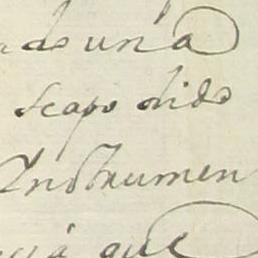 do una
scapo dido
Instrumen
cia que